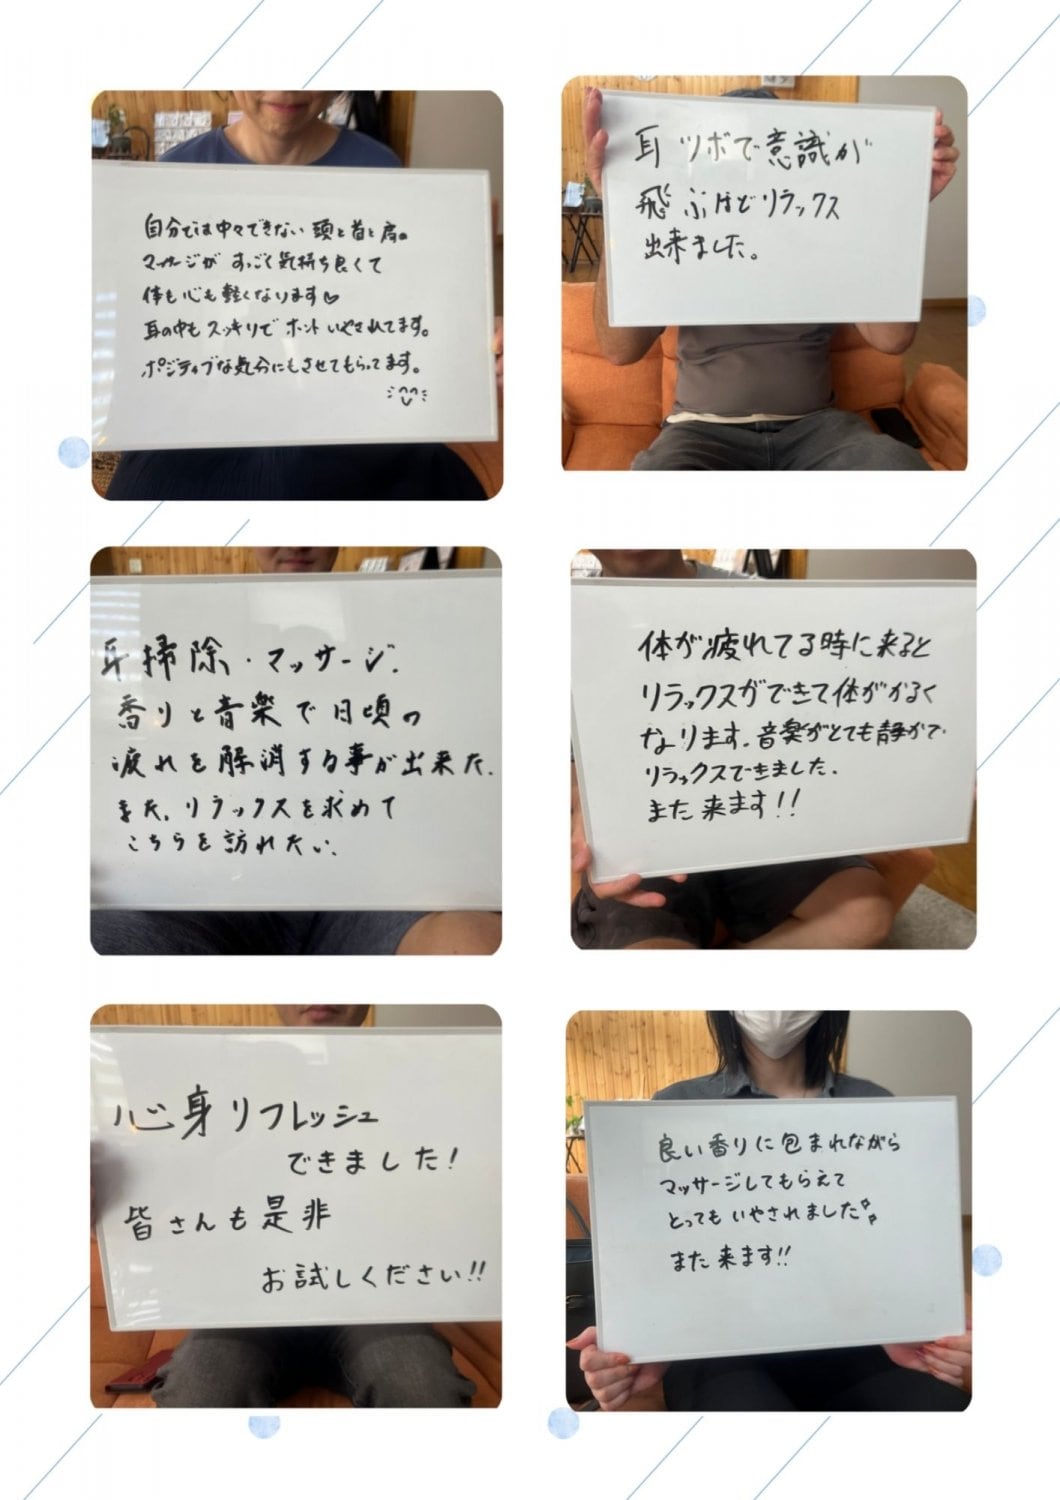 自分では中々できない頭と首と肩の
マッサージがすっごく気持ち良くて
体も心も軽くなります♡
耳の中もスッキリでホントいやされてます。
ポジティブな気分にもさせてもらってます。
耳ツボで意識が
飛ぶほどリラックス
出来ました。
耳掃除・マッサージ、
香りと音楽で日頃の
疲れを解消する事が出来た。
また、リラックスを求めて
こちらを訪れたい。
体が疲れてる時に来ると
リラックスができて体がかるく
なります。音楽がとても静かで
リラックスできました。
また来ます!!
心身リフレッシュ
できました!
皆さんも是非
お試しください!!
良い香りに包まれながら
マッサージしてもらえて
とってもいやされました
また来ます!!